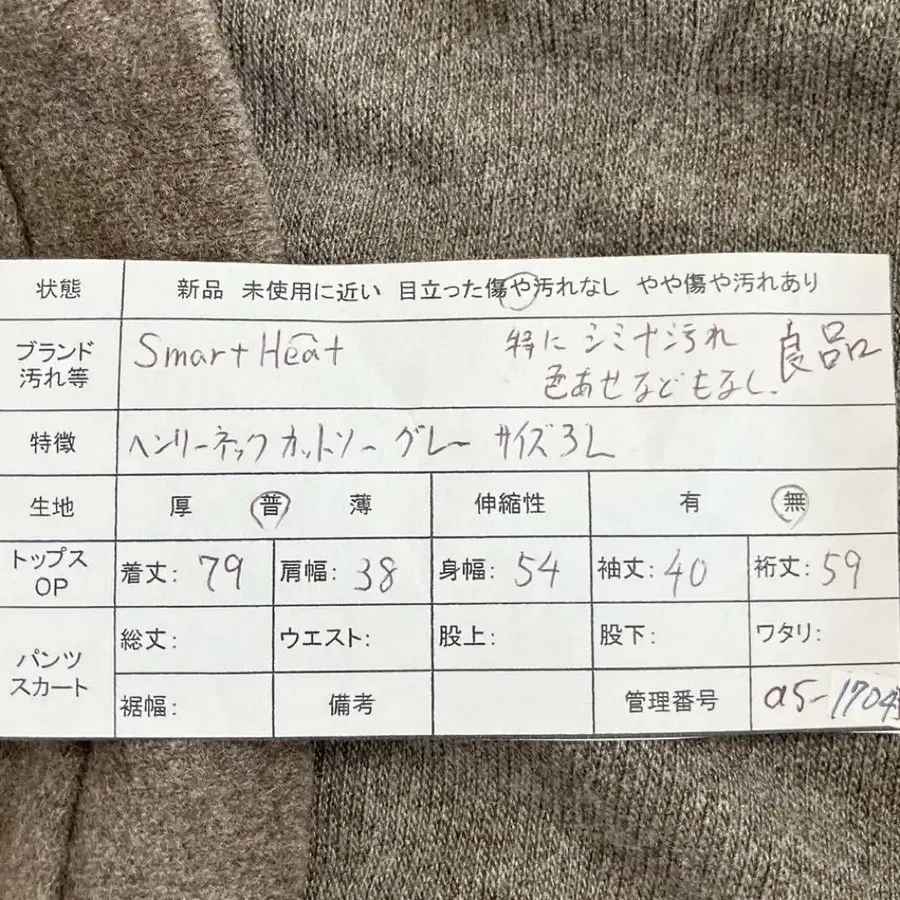 状態 新品 未使用に近い 目立った傷や汚れなし やや傷や汚れあり
ブランド
汚れ等
Smart Heat
特に シミや汚れ
色あせなどもなし.
良品
特徴 ヘンリーネック カットソー グレー サイズ3L
生地 厚 普 薄 伸縮性 有 無
トップス
OP
着丈: 79 肩幅: 38 身幅: 54 袖丈: 40 裄丈: 59
パンツ
スカート
総丈: ウエスト: 股上: 股下: ワタリ:
裾幅: 備考 管理番号 a5-1704